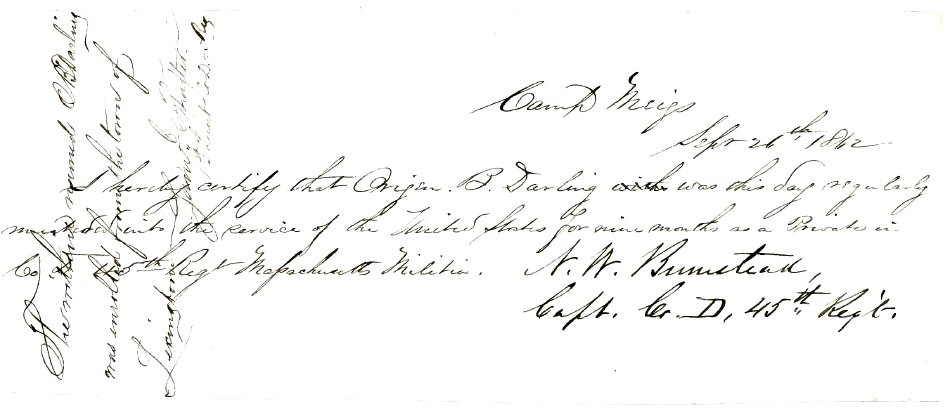 Camp Meigs
Sept 26th 1862
I hereby certify that Origen. B. Darling with was this day regularly
mustered into the service of the United States for nine months as a Private in
Co D 45th Regt Massachusetts Militia. N. W. Bumstead,
Capt. Co. D, 45th Reg't.
The within named O B Darling
was enrolled from the town of
Lexington